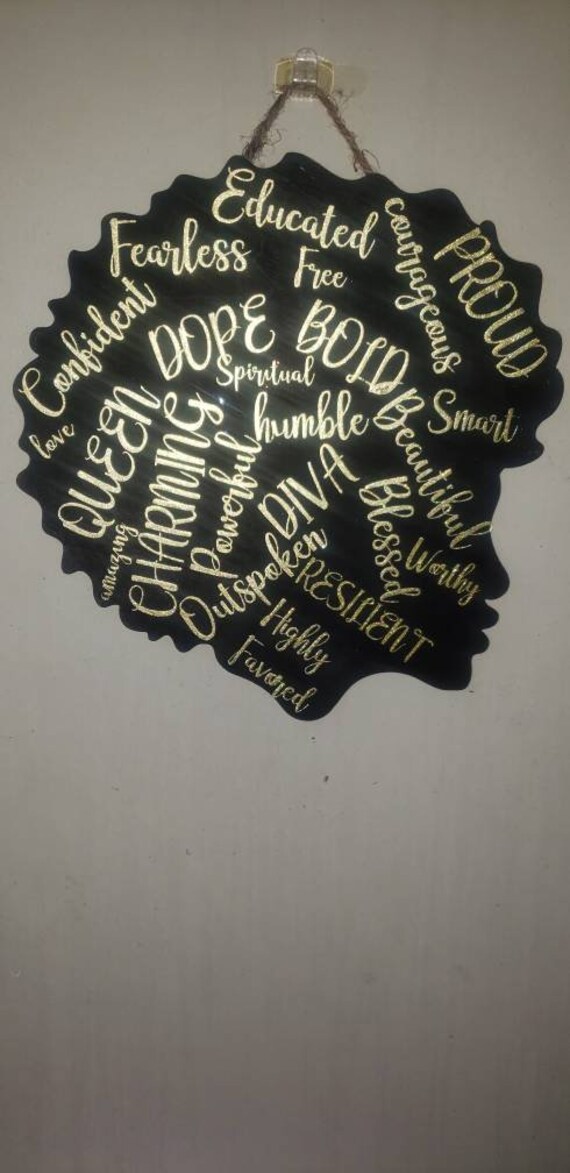 Educated
Fearless
Free
courageous
PROUD
Confident
DOPE
BOLD
Spiritual
love
QUEEN
CHARMING
humble
Beautiful
Smart
Powerful
DIVA
Blessed
amazing
Outspoken
Worthy
RESILIENT
Highly
Favored